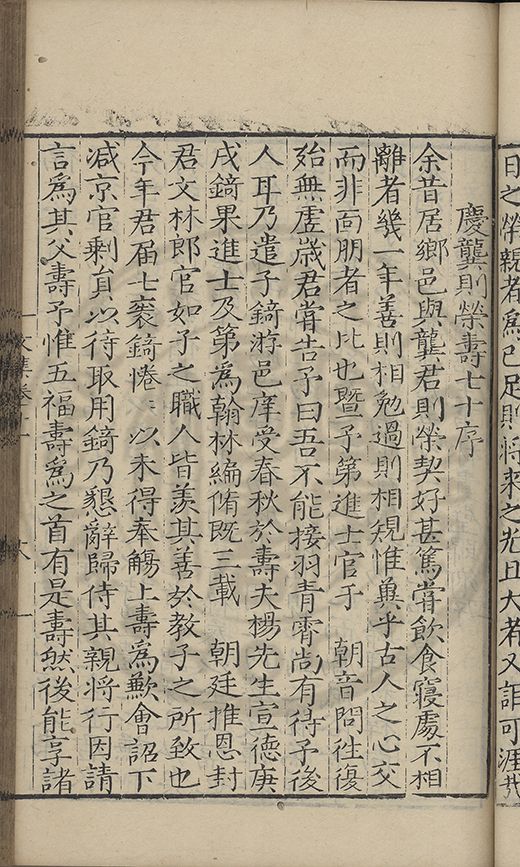 日之榮親者為已足則將来之光且大者又詎可涯哉
慶龔則榮壽七十序
余昔居鄉邑與龔君則榮契好甚篤嘗飲食寢處不相
離者幾一年善則相勉過則相規惟冀乎古人之心交
而非面朋者之比也暨予第進士官于 朝音問往復
殆無虛歲君嘗告予曰吾不能接羽青霄尚有待予後
人耳乃遣子錡游邑庠受春秋於壽夫楊先生宣德庚
戌錡果進士及第為翰林編脩既三載 朝廷推恩封
君文林郎官如子之職人皆羨其善於教子之所致也
今年君届七袠錡惓〻以未得奉觴上壽為歉會詔下
減京官剩員以待取用錡乃懇辭歸侍其親將行因請
言為其父壽予惟五福壽為之首有是壽然後能享諸
文集卷十